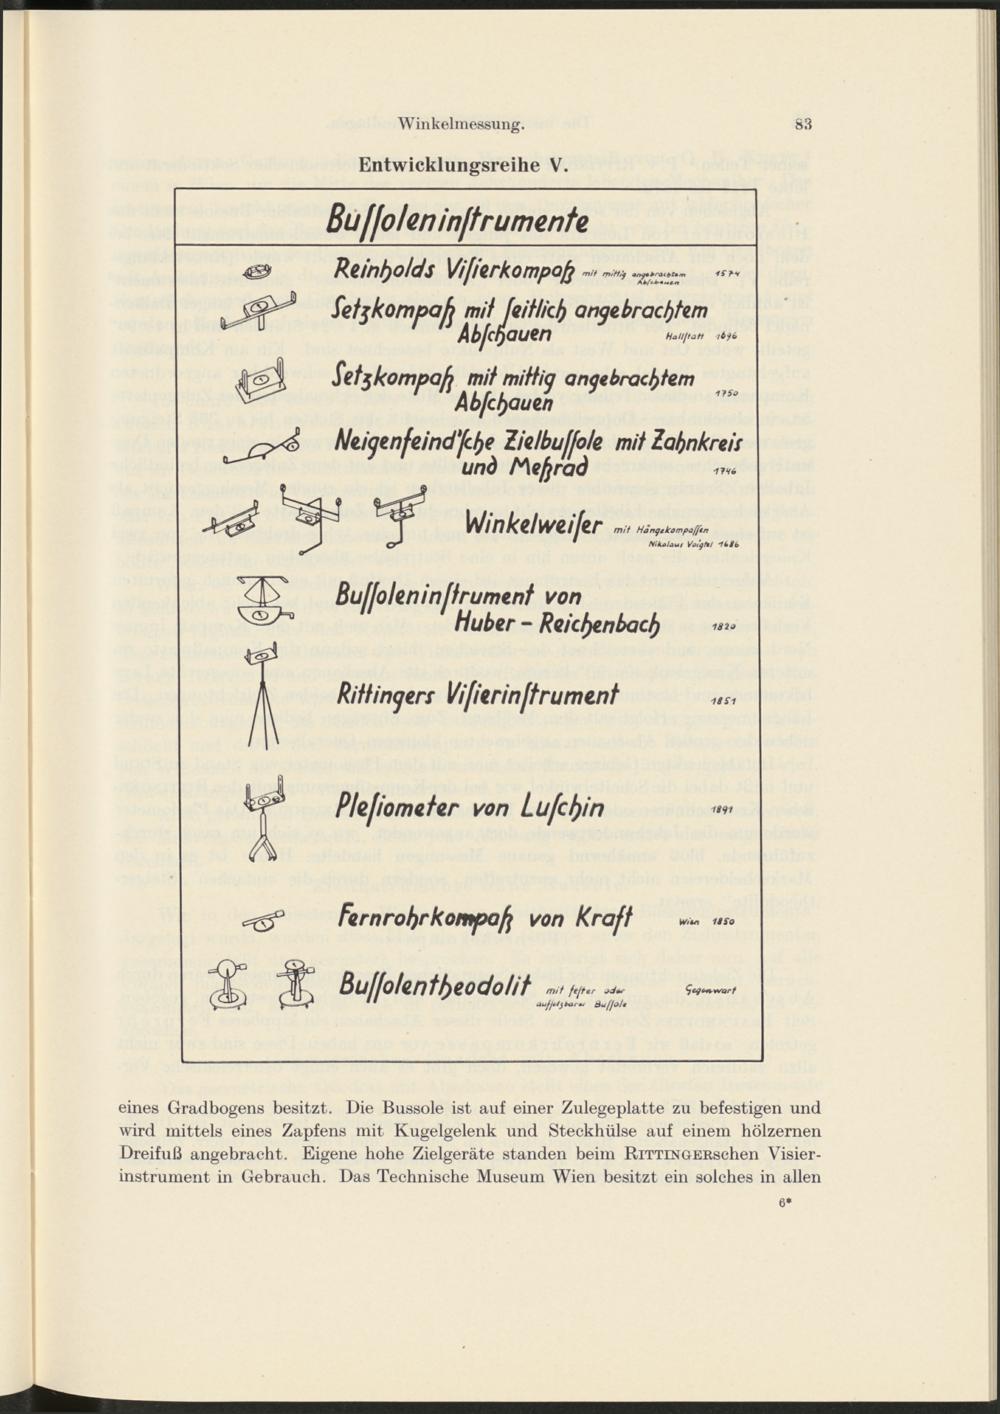 Winkelmessung.
83
Entwicklungsreihe V.
Buſſoleninſtrumente
Reinholds Viſierkompaß mit mittig angebrachtem Abſchauen 1574
Setzkompaß mit ſeitlich angebrachtem
Abſchauen Hallſtatt 1696
Setzkompaß mit mittig angebrachtem
Abſchauen 1750
Neigenfeind'ſche Zielbuſſole mit Zahnkreis
und Meßrad 1746
Winkelweiſer mit Hängekompaſſen
Nikolaus Voigtel 1686
Buſſoleninſtrument von
Huber – Reichenbach 1820
Rittingers Viſierinſtrument 1851
Pleſiometer von Luſchin 1891
Fernrohrkompaß von Kraft Wien 1850
Buſſolentheodolit mit feſter oder Gegenwart
aufſetzbarer Buſſole
eines Gradbogens besitzt. Die Bussole ist auf einer Zulegeplatte zu befestigen und
wird mittels eines Zapfens mit Kugelgelenk und Steckhülse auf einem hölzernen
Dreifuß angebracht. Eigene hohe Zielgeräte standen beim RITTINGERschen Visier-
instrument in Gebrauch. Das Technische Museum Wien besitzt ein solches in allen
6*